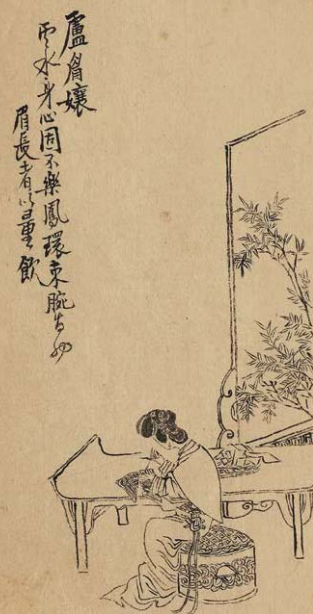 盧眉孃
雲水身心固不樂鳳環束腕生
眉長者以量飲